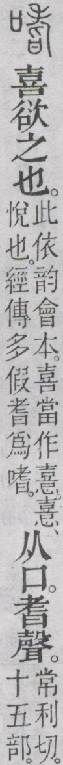 嗜
喜欲之也。
此依韵會本。喜當作憙。憙、
悅也。經傳多假耆爲嗜。
从口。耆聲。
常利切。
十五部。